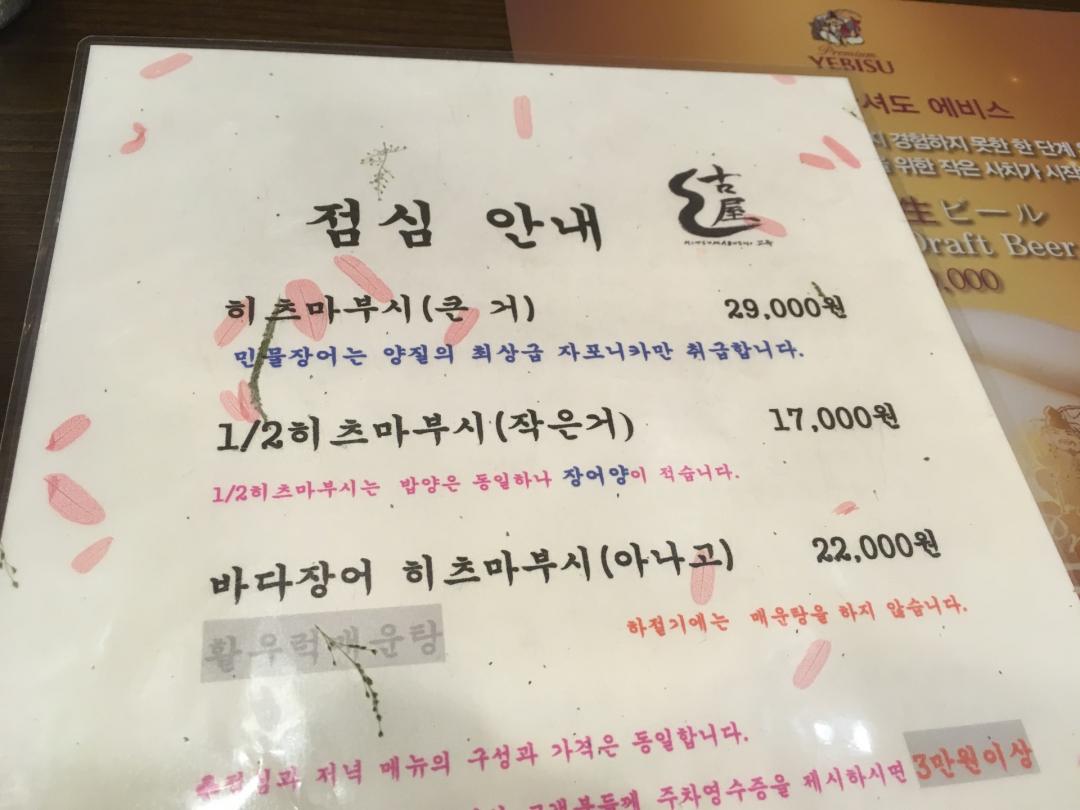 점심 안내
古屋
히츠마부시(큰 거) 29,000원
민물장어는 양질의 최상급 자포니카만 취급합니다.
1/2히츠마부시(작은거) 17,000원
1/2히츠마부시는 밥양은 동일하나 장어양이 적습니다.
바다장어 히츠마부시(아나고) 22,000원
활우럭매운탕
하절기에는 매운탕을 하지 않습니다.
저녁 메뉴의 구성과 가격은 동일합니다.
주차영수증을 제시하시면 3만원이상
Premium
YEBISU
셔도 에비스
경험하지 못한 한 단계
위한 작은 사치가 시작
生ビール
Draft Beer
,000